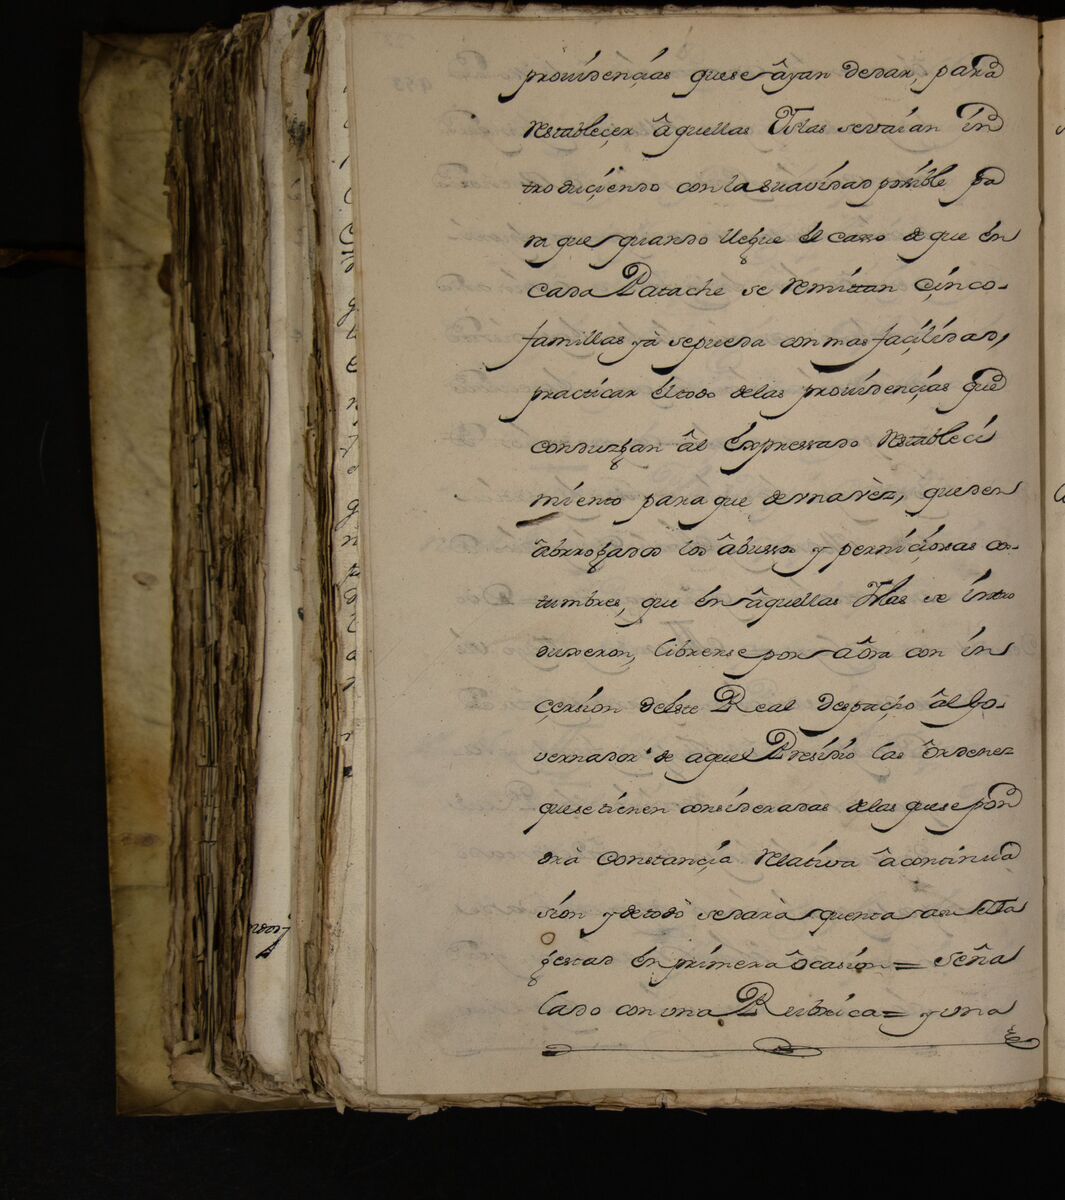 prouidençias quese âyan dedar, para
restableçer âquellas Yslas sevaian în
troduçiendo conla suavidad posible pa
ra que quando llegue êl casso de que ên
cada Patache se remittan Çinco-
familias yà sepueda conmas façilidad,
practicar êltodo delas prouidençias que
conduzgan âl êxpressado restableci
miento para que devnavèz, queden
âbrrogados los âbussos y perniçiossas cos-
tumbres, que ên âquellas Yslas se întro
duxeron, librense por âôra con în
çersion deêste Real despacho âl Go-
vernador de aquel Presidio las Ôrdenez
quese tienen consideradas delas quese pon
drà constançia relativa âcontinua
sion y detodo sedarà quenta asu Ma
gestad ên primera ôcasion = seña
lado con vna Rubrica = y vna